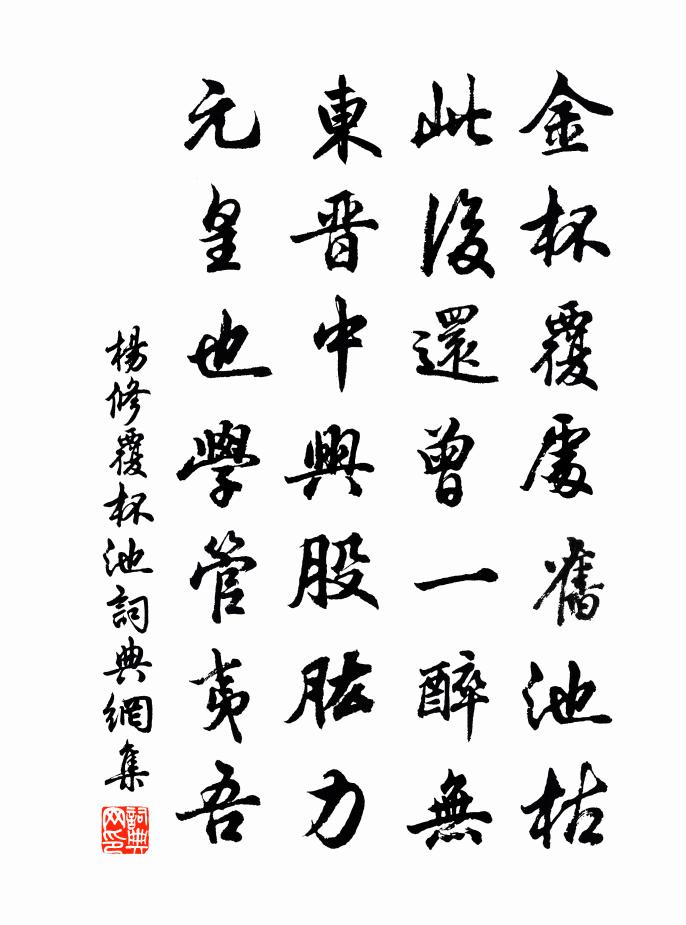 金杯覆處舊池枯
此後還曾一醉無
東晋中興股肱力
元皇也學管夷吾
楊修覆杯池詞典網集
詞典網印